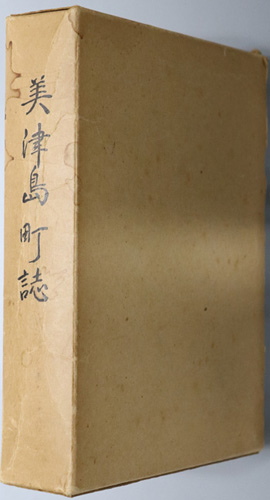 美津島町誌